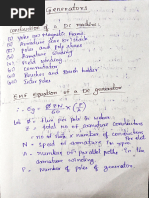 Generators
Construction of a DC machine:
(i) Yoke (or) Magnetic frame
(ii) Armature core (or) stack
(iii) Poles and pole shoes
(iv) Armature winding
(v) Field winding
(vi) Commutator
(vii) Brushes and Brush holder
(viii) Poles Shaft
EMF equation of a DC generator
∴ Eg = ϕZN/60 × (P/A)
Let ϕ = flux per pole in webers
Z = total no of armature conductors
= no of slots × number of conductors
N = speed of armature in rpm
A = number of parallel paths in the
armature winding
P = Number of poles of generator